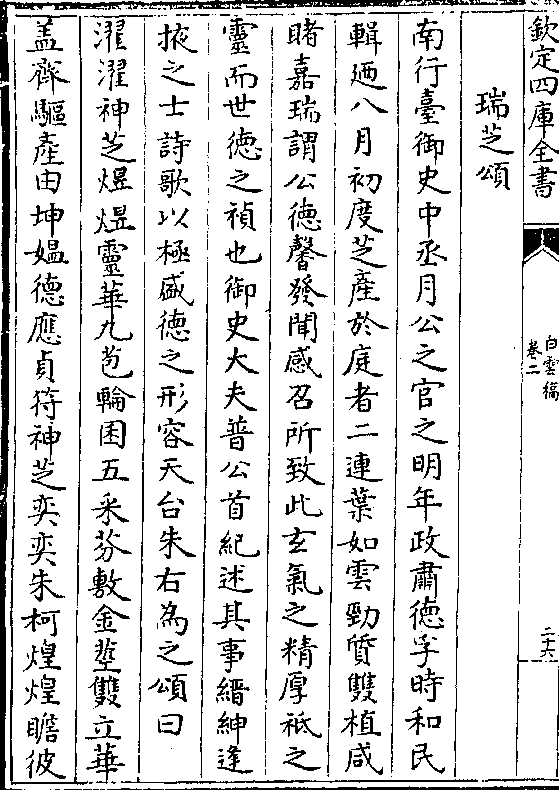 欽定四庫全書
白雲稿
卷二
二十六
瑞芝頌
南行臺御史中丞月公之官之明年政肅德孚時和民
輯廼八月初度芝產於庭者二連葉如雲勁質雙植咸
睹嘉瑞謂公德馨發聞感召所致此玄氣之精厚祗之
靈而世德之禎也御史大夫普公首紀述其事縉紳逢
掖之士詩歌以極盛德之形容天台朱右為之頌曰
濯濯神芝煜煜靈華九苞輪囷五采芬敷金莖雙立華
盖齊驅產由坤媪德應貞符神芝奕奕朱柯煌煌瞻彼